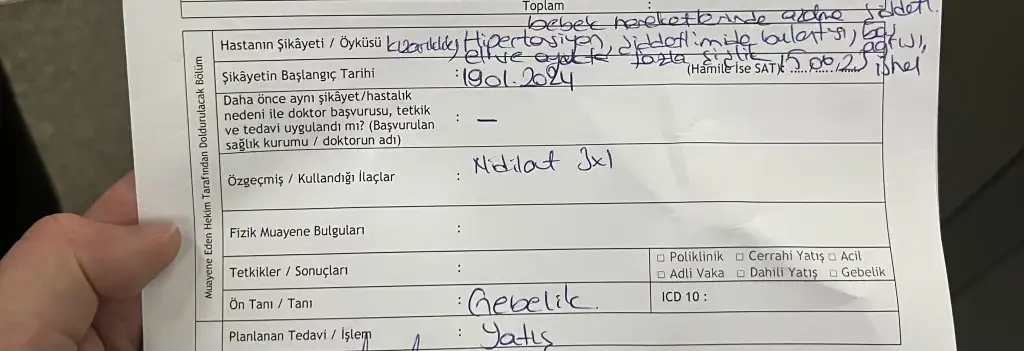 Toplam :
bebek hareketlerinde azalma şiddetl.
Hastanın Şikâyeti / Öyküsü kızarıklık, Hipertansiyon, şiddetli mide bulantısı, baş ağrısı,
elde ayakta fazla şişlik ishal
Şikâyetin Başlangıç Tarihi : 19.01.2024 (Hamile İse SAT):
Daha önce aynı şikâyet/hastalık
nedeni ile doktor başvurusu, tetkik : —
ve tedavi uygulandı mı? (Başvurulan
sağlık kurumu / doktorun adı)
Özgeçmiş / Kullandığı İlaçlar : Nidilat 3x1
Fizik Muayene Bulguları :
Tetkikler / Sonuçları :
□ Poliklinik □ Cerrahi Yatış □ Acil
□ Adli Vaka □ Dahili Yatış □ Gebelik
Ön Tanı / Tanı : Gebelik. ICD 10 :
Planlanan Tedavi / İşlem : Yatış
Muayene Eden Hekim Tarafından Doldurulacak Bölüm